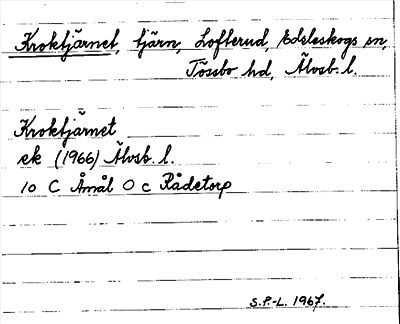 Kroktjärnet, tjärn, Lofterud, Edeleskogs sn,
Tössbo hd, Älvsb. l.
Kroktjärnet
ek (1966) Älvsb. l.
10 C Åmål O c Rådetorp
S.P.-L. 1967.